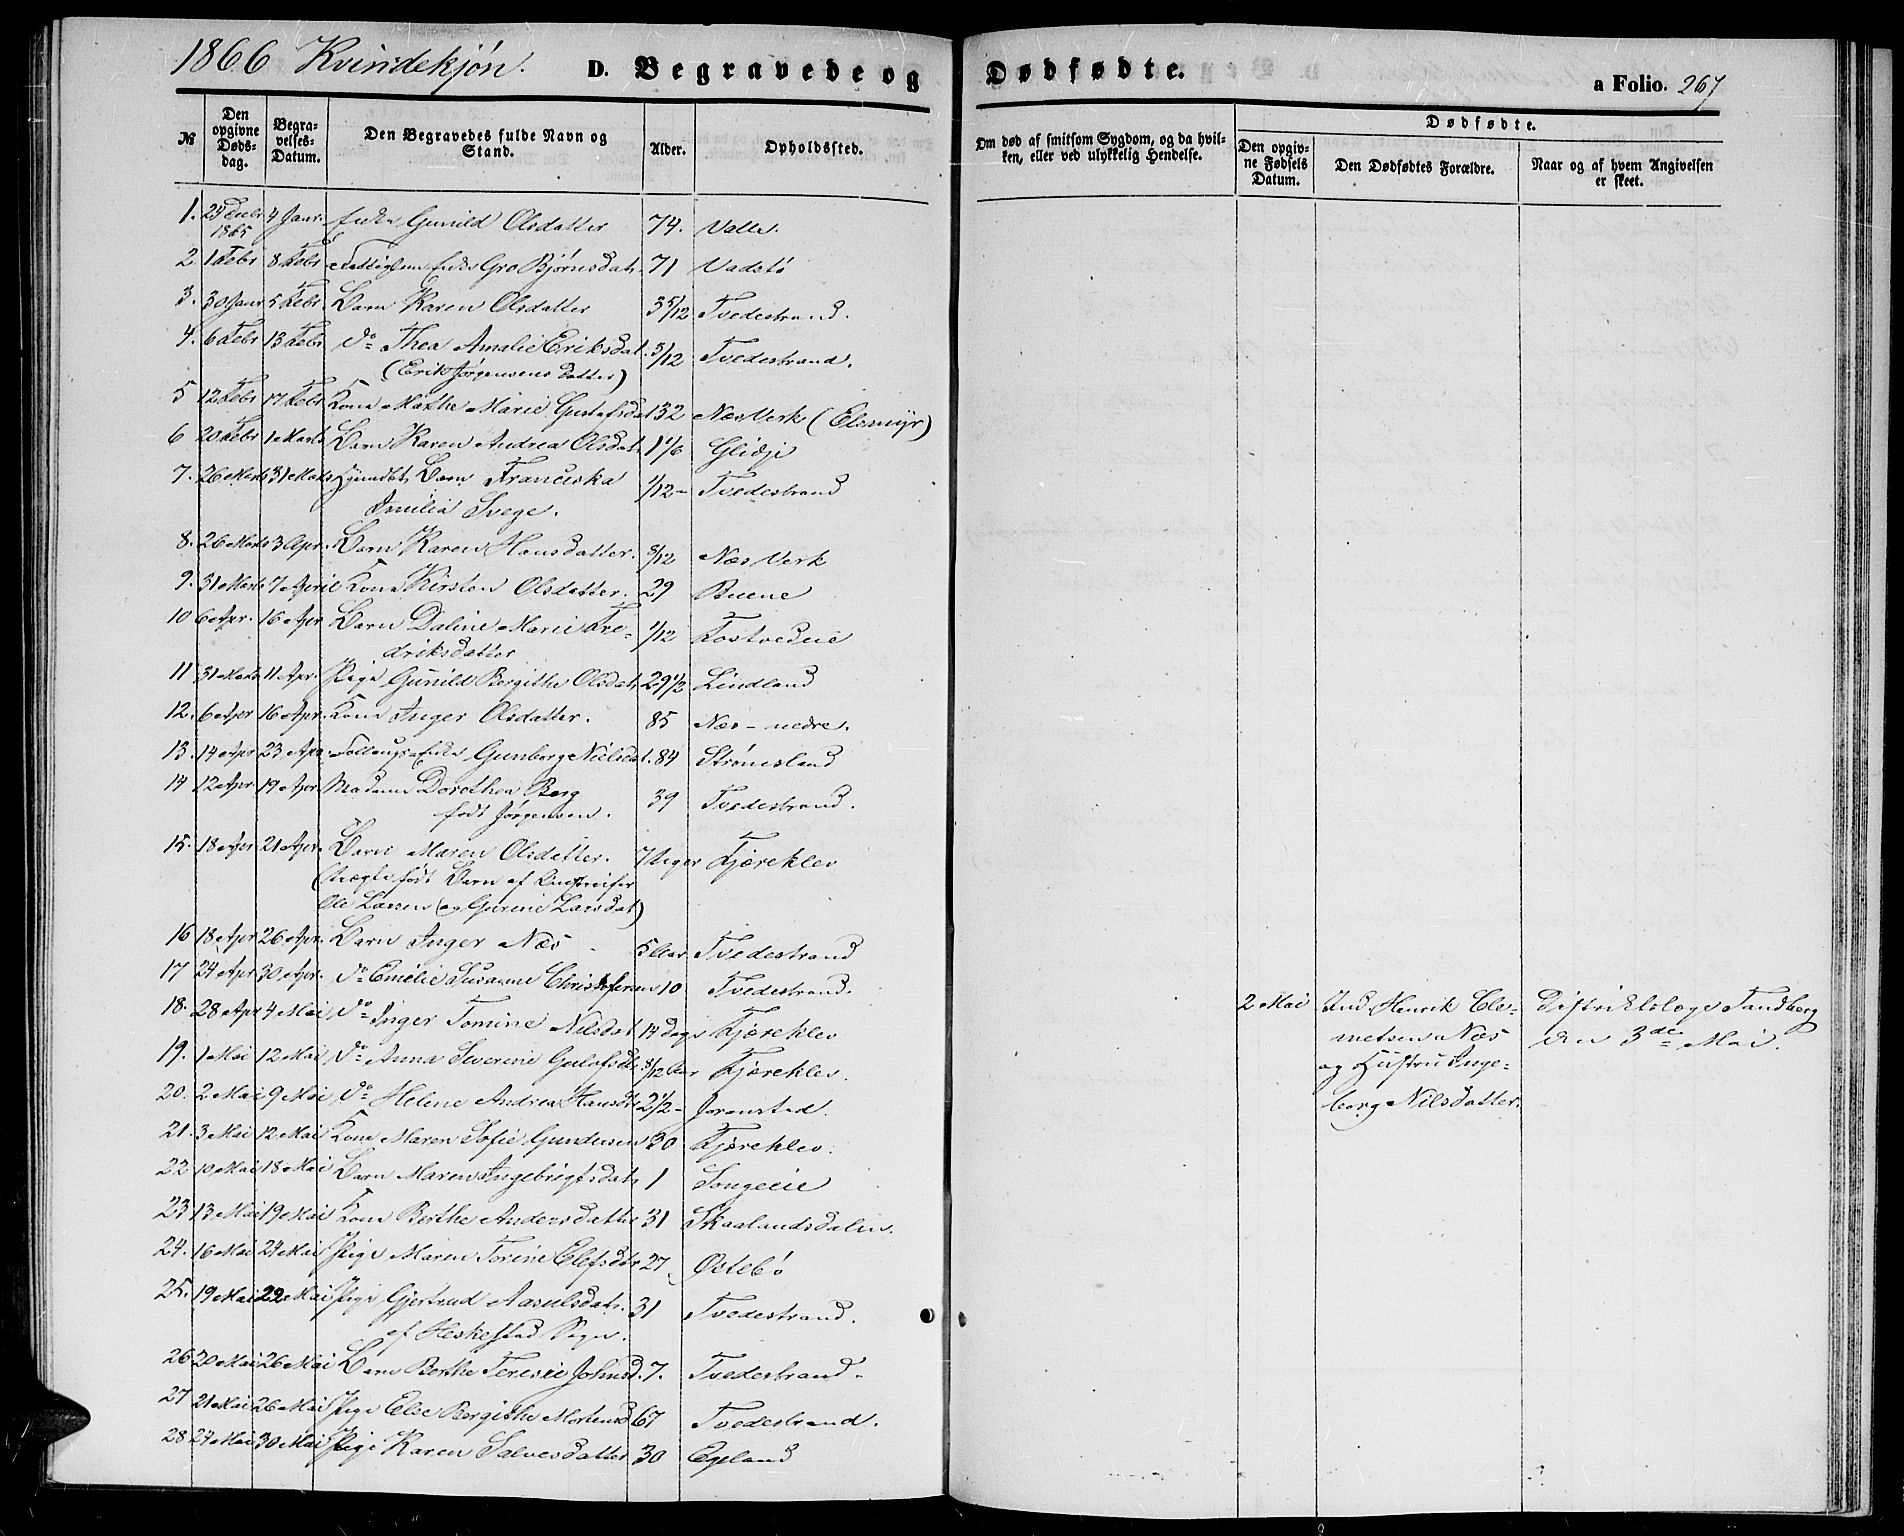 1866 Kvindekjøn. D. Begravede og Dødfødte. a Folio. 267
No
Den opgivne Døds-dag.
Begra-velses-Datum.
Den Begravedes fulde Navn og Stand.
Alder.
Opholdssted.
Om død af smitsom Sygdom, og da hvil-ken, eller ved ulykkelig Hendelse.
Dødfødte.
Den opgiv-ne Fødsels Datum.
Den Dødfødtes Forældre.
Naar og af hvem Angivelsen er skeet.
1. 29 Decbr 4 Januar Enke Gunild Olsdatter 74. Valle.
1865
2. 1 Febr 8 Febr Fattiglem Enke Gro Bjørnsdatr. 71 Vadstø
3. 30 Janr 5 Febr. Barn Karen Olsdatter 3 5/12 Tvedestrand.
4. 6 Febr 13 Febr do Thea Amalie Eriksdat. 5/12 Tvedestrand.
(Erik Jørgensens Datter)
5 12 Febr 17 Febr Kone Mathe Marie Gustafsdat 32 Næs Verk (Elsmyr)
6 20 Febr 1 Marts Barn Karen Andrea Olsdatr 1 1/6 Glidje
7. 26 Marts 31 Marts Barn Franciska 1/12 - Tvedestrand
Emilia Svege.
8. 26 Marts 3 Apr. Barn Karen Hansdatter. 8/12 Næs Verk
9. 31 Marts 7 April Kone Kirsten Olsdatter. 29 Buene
10 6 Apr. 16 Apr Barn Daline Marie Fre- 1/12 Kostvedeie
driksdatter
11 31 Marts 11 Apr. Pige Gunild Bergithe Olsdatr 29 1/2 Lindland
12. 6 Apr 16 Apr. Kone Inger Olsdatter. 85 Næs - nedre.
13. 14 Apr 23 Apr Enke Gunborg Nielsdat. 84 Strømsland
14 12 Apr. 19 Apr. Madame Dorothea Berg 39 Tvedestrand.
født Jørgensen.
15. 18 Apr 21 Apr. Barn Maren Olsdatter. 7 Uger Kjæreklev
(Uægte født Barn af
Ole Larsen og Gurine Larsdat)
16 18 Apr 26 Apr. Barn Inger Næs 5 Aar Tvedestrand
17 24 Apr 30 Apr. do Emelie Susanne Christofersen 10 Tvedestrand.
18. 28 Apr 4 Mai do Inger Tomine Nilsdat 14 Dage Kjæreklev
2 Mai Ind. Henrik Cle- Distriktslæge Tandberg
metsen Næs den 3de Mai.
og Hustru Inge-
borg Nilsdatter.
19. 1 Mai 12 Mai do Anna Severine Gulofsdtr. 8/12 Aar Kjæreklev.
20. 2 Mai 9 Mai do Helene Andrea Hansdtr 2 1/2 - Joranstad.
21. 3 Mai 12 Mai Kone Maren Sofie Gundersen 30 Kjæreklev.
22 10 Mai 18 Mai Barn Maren Ingebrigtsdatr 1 Songeeie
23 13 Mai 19 Mai Kone Berthe Andersdatter 31 Skaalandsdalen.
24. 16 Mai 24 Mai Pige Maren Torine Elefsdtr 27 Østebø
25. 19 Mai 22 Mai Pige Gjertrud Aasulsdatr. 31 Tvedestrand.
af Heskestad Sogn.
26 20 Mai 26 Mai Barn Berthe Teresie Johnsd. 7. Tvedestrand.
27 21 Mai 26 Mai Pige Else Bergithe Mortensd 67 Tvedestrand.
28 27 Mai 30 Mai Pige Karen Salvesdatter 30 Egeland